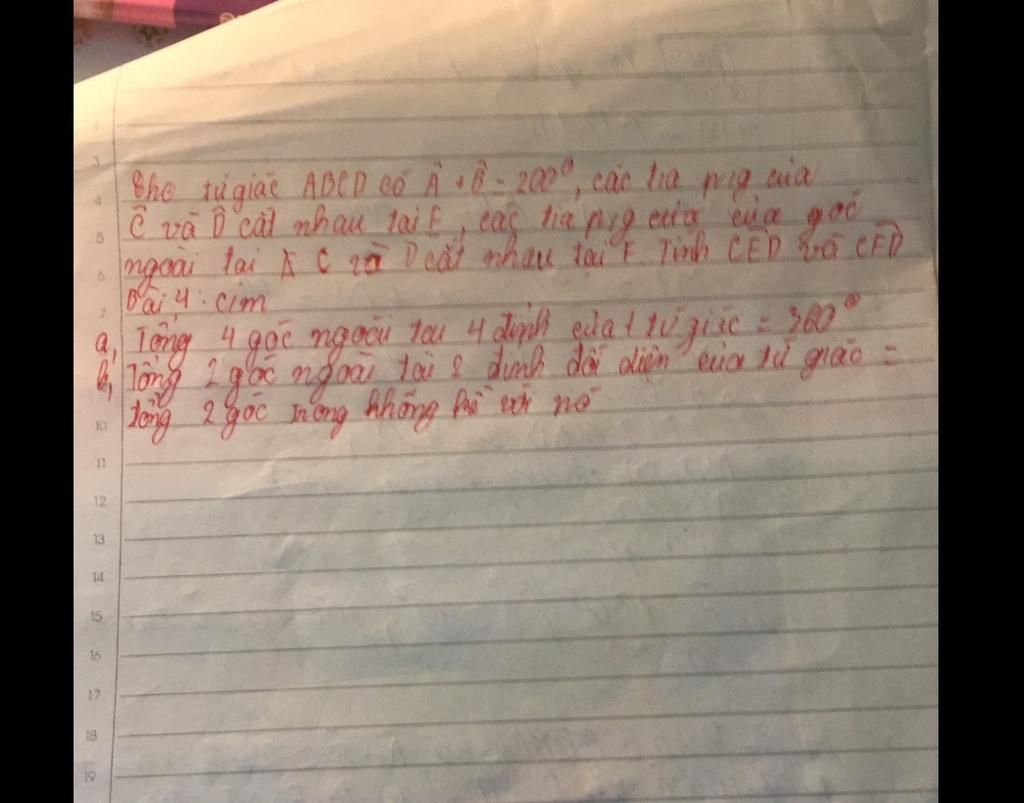 3
Cho tứ giác ABCD có Â + B̂ = 200°, các tia p/g của
4
Ĉ và D̂ cắt nhau tại E, các tia p/g của của góc
5
ngoài tại C và D cắt nhau tại F. Tính CED và CFD
6
Bài 4: Cim
7
a, Tổng 4 góc ngoài tại 4 đỉnh của 1 tứ giác = 360°
b, Tổng 2 góc ngoài tại 2 đỉnh đối diện của tứ giác =
tổng 2 góc trong không kề với nó
10
11
12
13
14
15
16
17
18
19